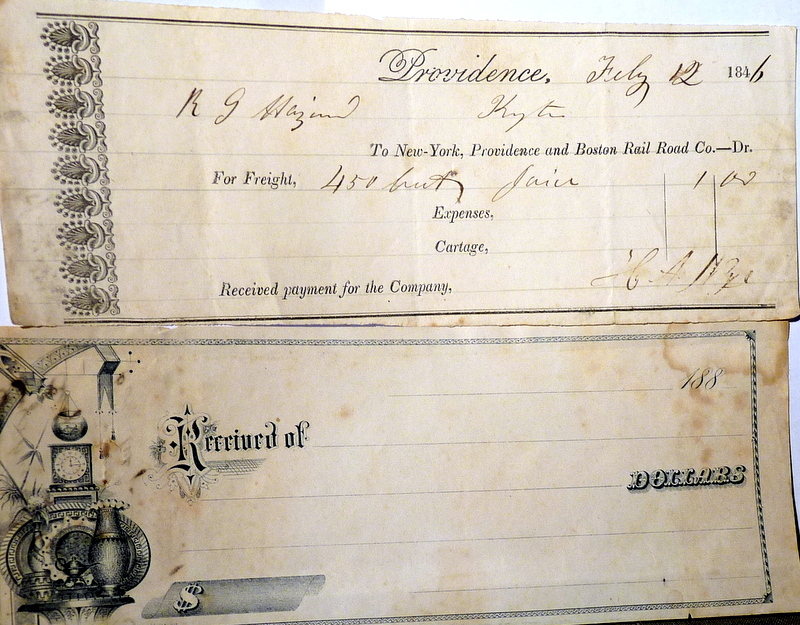 Providence, July 12 1846
R G Hazard
To New-York, Providence and Boston Rail Road Co.—Dr.
For Freight, 450 1 00
Expenses,
Cartage,
Received payment for the Company,
188
Received of
DOLLARS
$